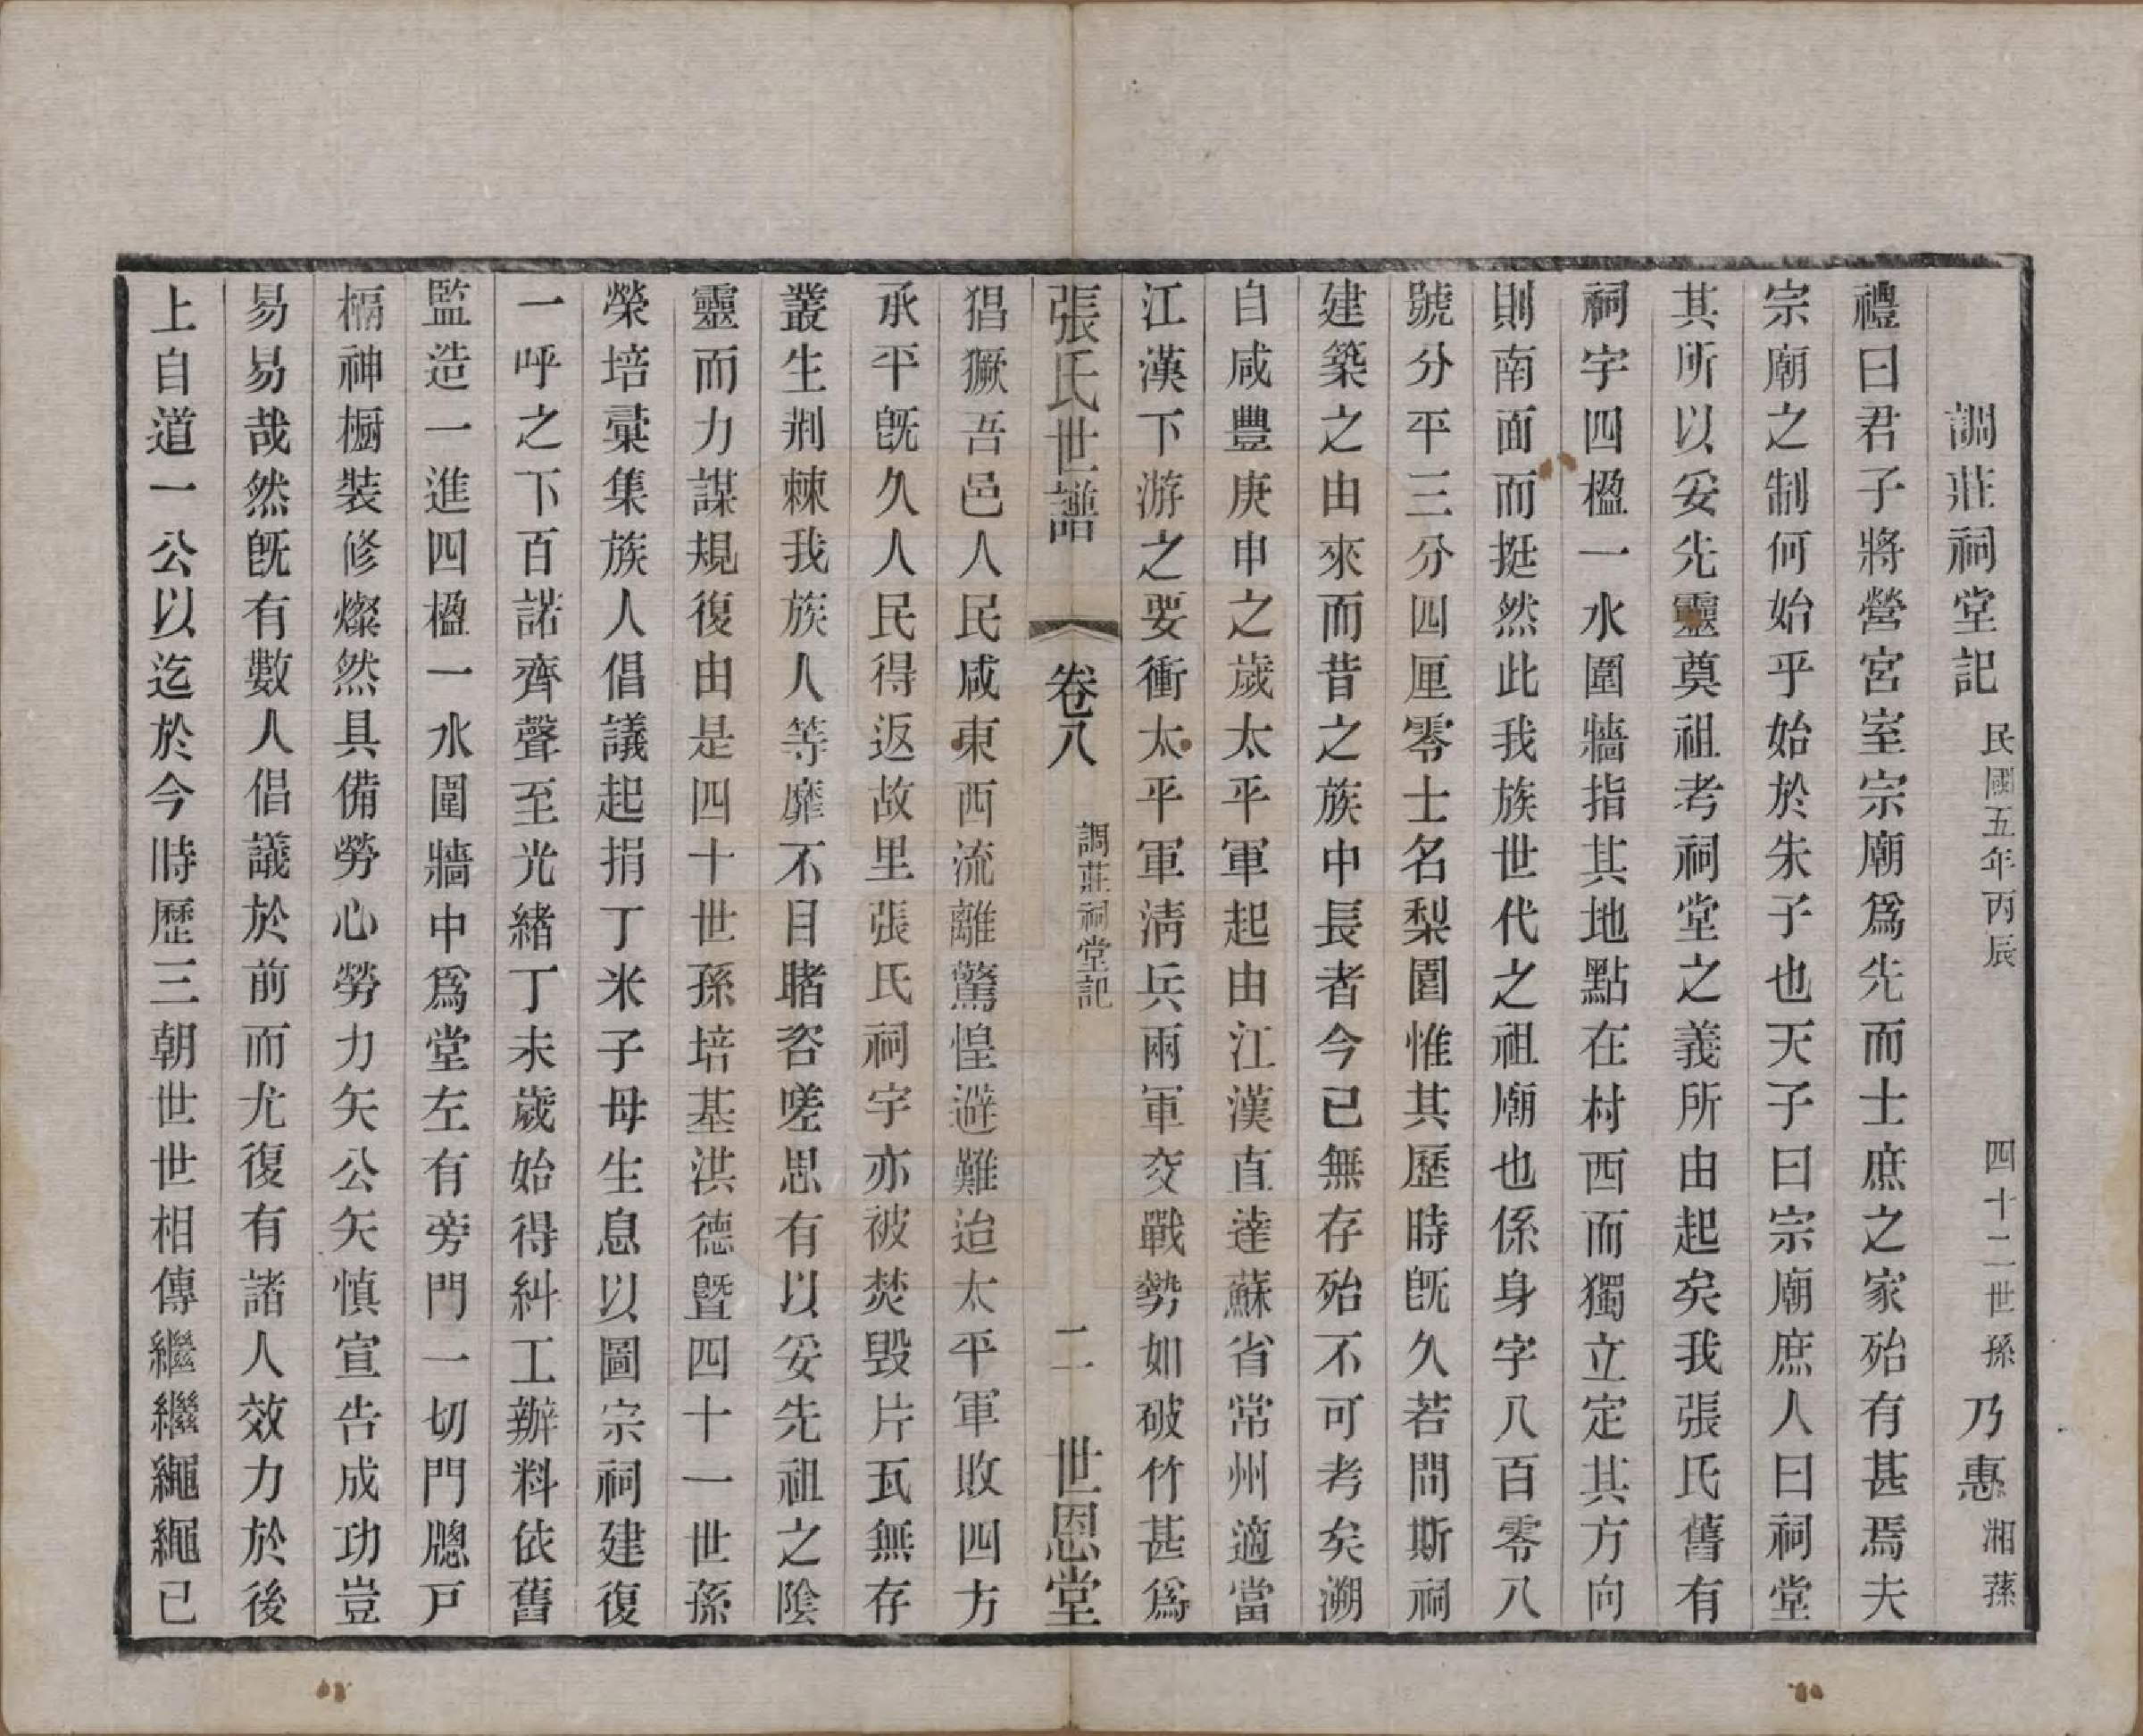 調莊祠堂記 民國五年丙辰 四十二世孫 乃惠 湘蓀
禮曰君子將營宮室宗廟爲先而士庶之家殆有甚焉夫
宗廟之制何始乎始於朱子也天子曰宗廟庶人曰祠堂
其所以妥先靈奠祖考祠堂之義所由起矣我張氏舊有
祠宇四楹一水圍牆指其地點在村西而獨立定其方向
則南面而挺然此我族世代之祖廟也係身字八百零八
號分平三分四厘零士名梨園惟其歷時旣久若問斯祠
建築之由來而昔之族中長者今已無存殆不可考矣溯
自咸豐庚申之歲太平軍起由江漢直達蘇省常州適當
江漢下游之要衝太平軍淸兵兩軍交戰勢如破竹甚爲
張氏世譜 卷八 調莊祠堂記 二 世恩堂
猖獗吾邑人民咸東西流離驚惶避難迨太平軍敗四方
承平旣久人民得返故里張氏祠宇亦被焚毀片瓦無存
叢生荆棘我族人等靡不目睹咨嗟思有以妥先祖之陰
靈而力謀規復由是四十世孫培基洪德曁四十一世孫
榮培彙集族人倡議起捐丁米子母生息以圖宗祠建復
一呼之下百諾齊聲至光緒丁未歲始得糾工辦料依舊
監造一進四楹一水圍牆中爲堂左有旁門一切門牕戸
槅神橱裝修燦然具備勞心勞力矢公矢愼宣告成功豈
易易哉然旣有數人倡議於前而尤復有諸人效力於後
上自道一公以迄於今時歷三朝世世相傳繼繼繩繩已